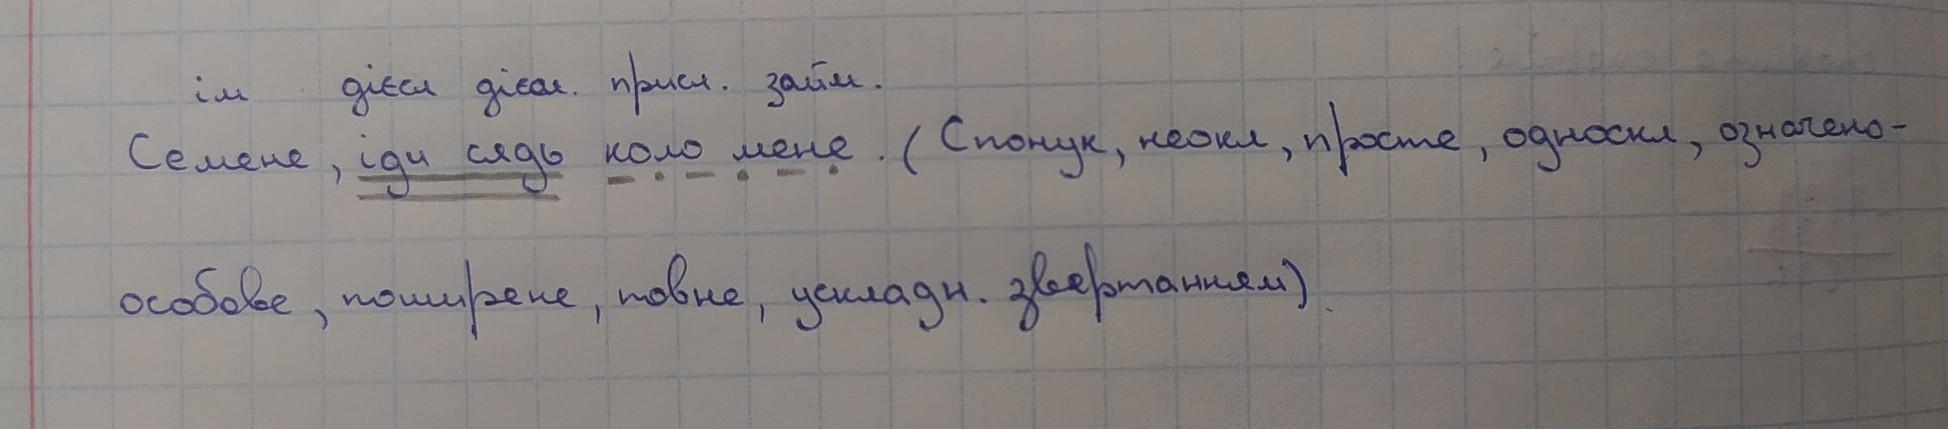 ім дієсл дієсл. присл. займ.
Семене, іди сядь коло мене. (Спонук, неокл, просте, односкл, означено-
особове, поширене, повне, ускладн. звертанням)